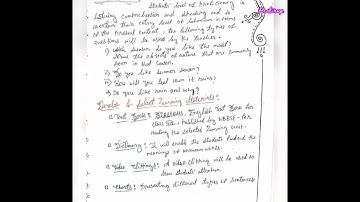 students' level of proficiency in
listening comprehension and speaking and to
ascertain their entry level of behaviour in terms
of the present content, the following types of
questions will be asked by the teacher.
i) Which season do you like the most?
Name the objects of nature that are commonly
seen in that season.
ii) Do you like summer season?
iii) How will you feel when it rains?
iv) Do you like rain and why?
Develop & Select Learning Materials:
Text Book: BLOSSOMS, English Text Book for
class , Published by WBBSE
the selected Learning unit.
Dictionary: It will enable the students find out the
meanings of unknown words.
Video Clippings: A video clipping will be used to
draw students' attention.
Charts: Presenting different types of sentences